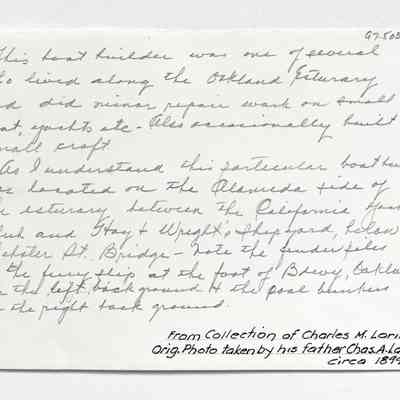 97.505
This boat builder was one of several
who lived along the Oakland Esturary
and did minor repair work on small
boat, yachts etc - Also occasionally built
small craft.
As I understand this particular boat
was located on the Alameda side of
the esturary between the California
and Hay & Wright's Shipyard, below
Webster St. Bridge - Note the fender piles
the ferry slip at the foot of Bdwy,
in the left background & the coal bunkers
in the right background.
From Collection of Charles M.
Orig. Photo taken by his father Chas. A.
circa 189